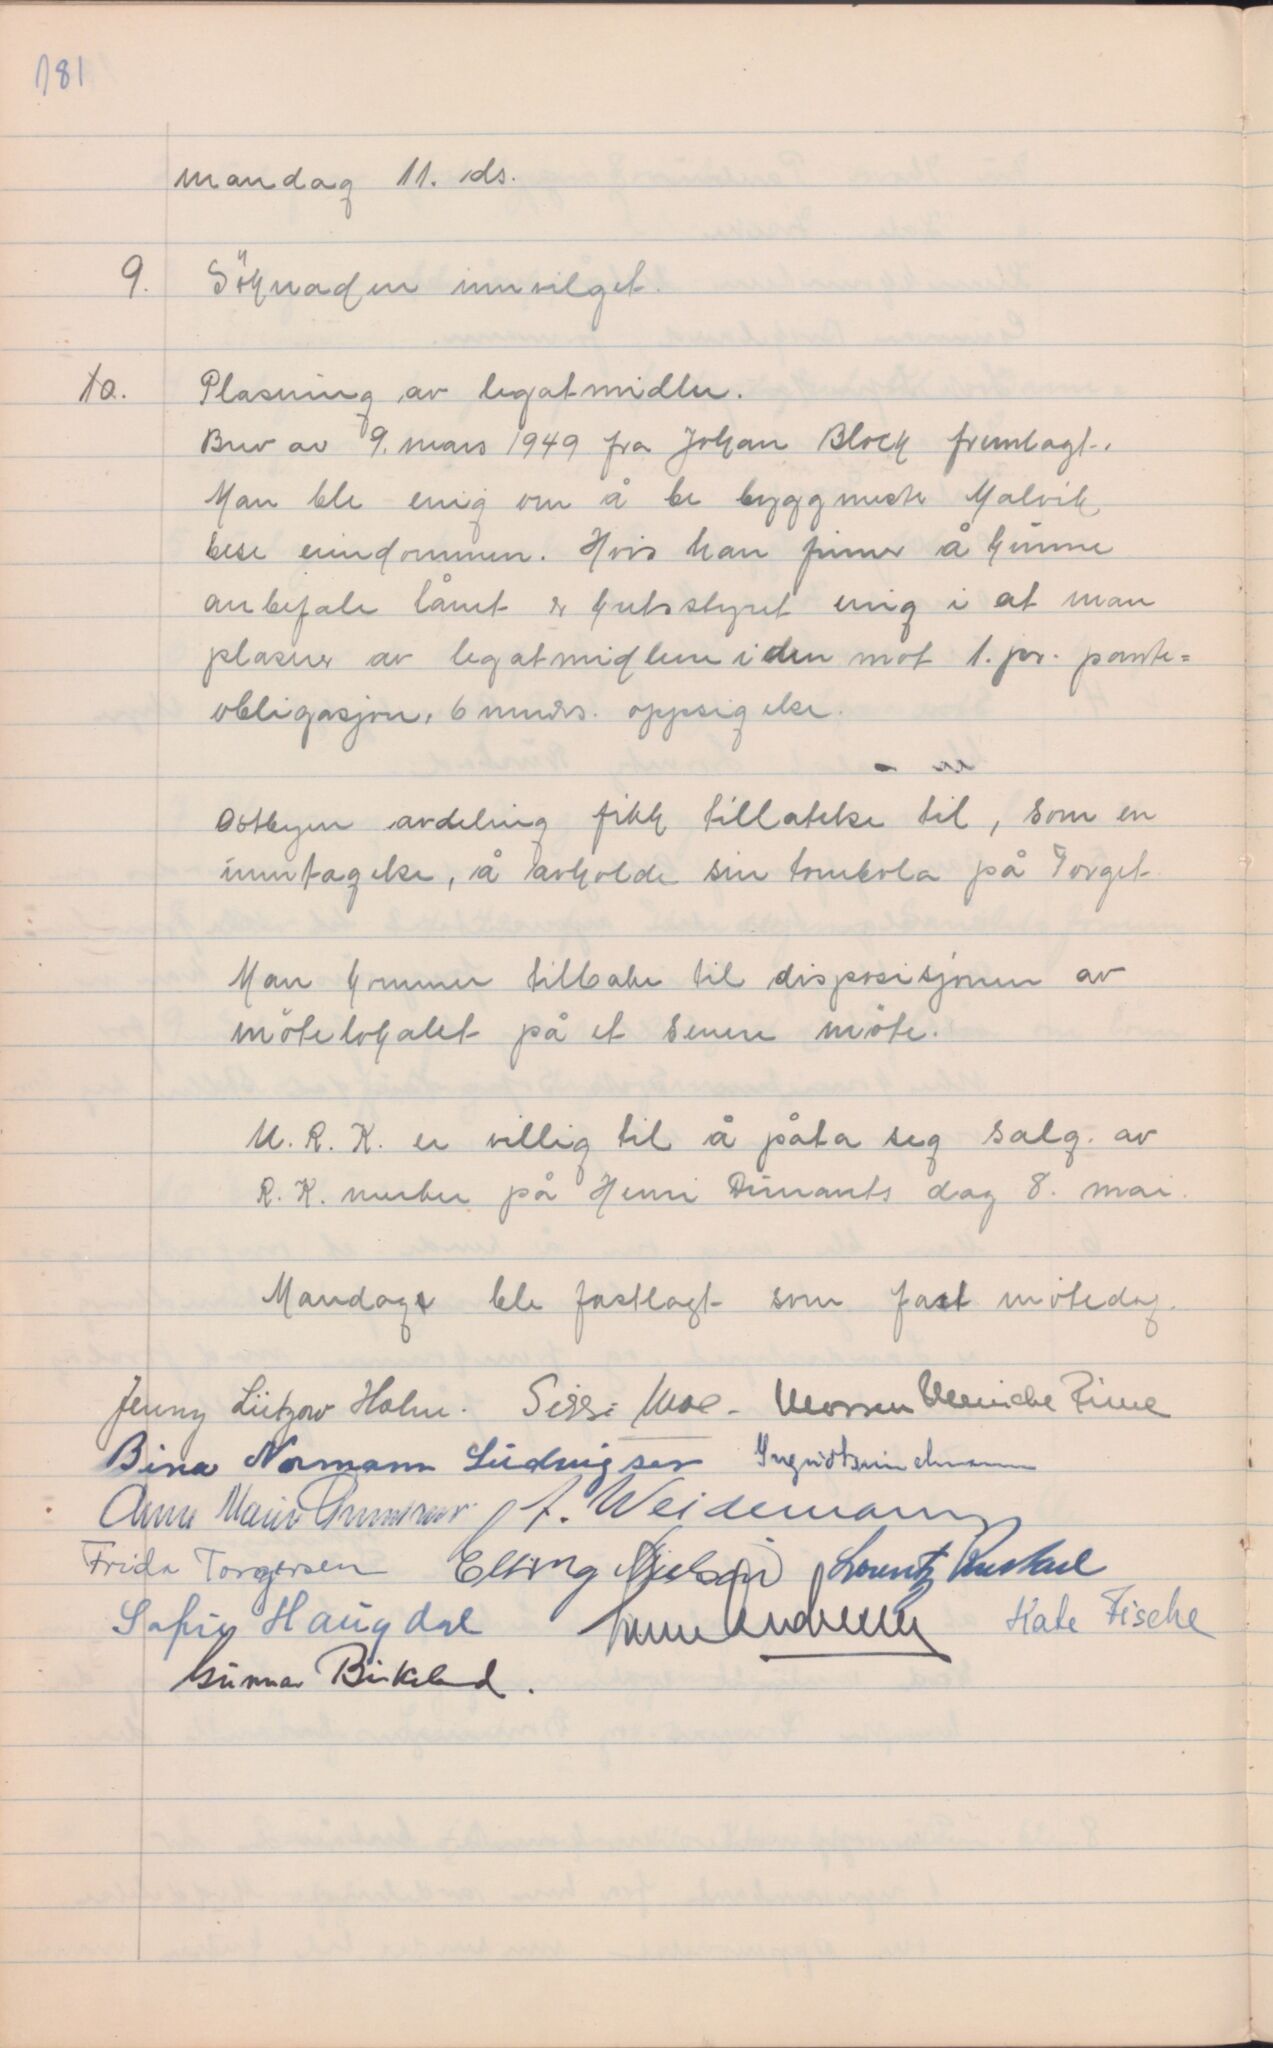 181
mandag 11. ds.
9. Söknaden innvilget.
10. Plasering av legatmidler.
Brev av 9. mars 1949 fra Johan Block fremlagt.
Man ble enig om å be byggmester Malvik
bese eiendommen. Hvis han finner å kunne
anbefale lånet er kretsstyret enig i at man
plaserer av legatmidlene i den mot 1. pr. pante=
obligasjon, 6 mndrs. oppsigelse.
Östbyen avdeling fikk tillatelse til, som en
unntagelse, å avholde sin tombola på Torget.
Man kommer tilbake til disposisjonen av
mötelokalet på et senere möte.
U. R. K. er villig til å påta seg salg av
R. K. merker på Henri Dunants dag 8. mai.
Mandag ble fastlagt som fast mötedag.
Jenny Lützow Holm. Sissi Moe -
Bina Normann Ludvigsen
Anne Marie A. Weidemann
Frida Torgersen Elling Nielsen Lorentz
Sofie Haugdal Kate Fische
Gunnar Birkeland.